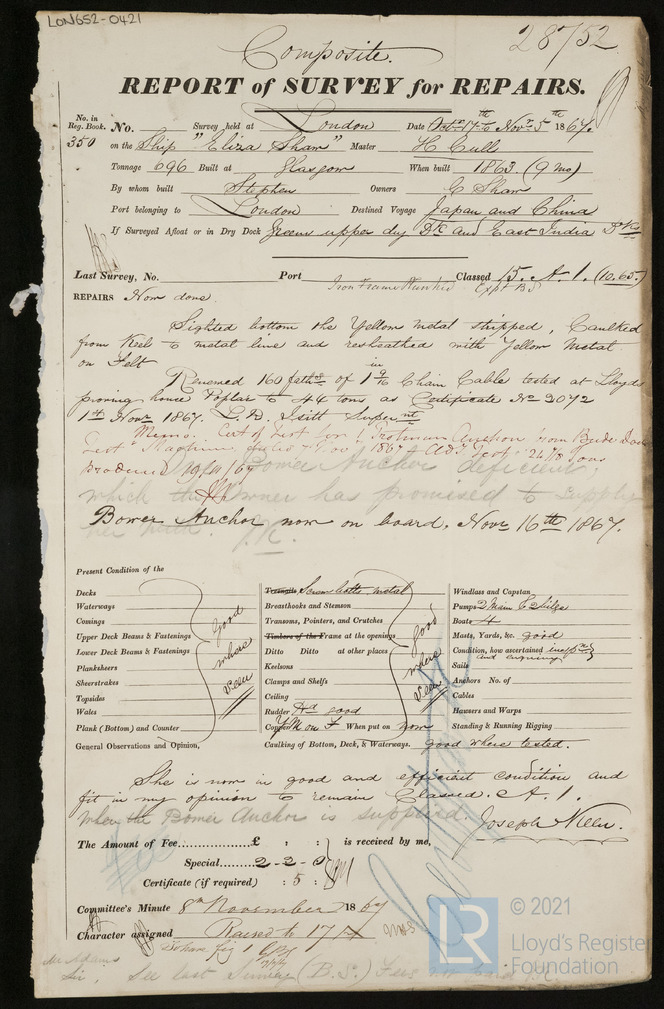 LON652-0421
Composite.
28752
REPORT of SURVEY for REPAIRS.
No. in Reg. Book. No. Survey held at London Date Octr 17th to Novr 5th 1867.
350 on the Ship "Eliza Shaw" Master H Cull
Tonnage 696 Built at Glasgow When built 1863 (9 mo)
By whom built Stephen Owners C Shaw
Port belonging to London Destined Voyage Japan and China
If Surveyed Afloat or in Dry Dock Greens upper dry Dk and East India Dks
Last Survey, No. Port Classed 15. A. 1. (10.65)
Iron Frame Planked Expt B.S
REPAIRS Now done
Sighted bottom the Yellow metal stripped, Caulked
from Keel to metal line and resheathed with Yellow Metal
on Felt
Renewed 160 faths of 1 9/16 in Chain Cable tested at Lloyds
proving house Poplar to 44 tons as Certificate No 3072
1st Novr 1867. Superint
Memo. Cert of Test for 1 Trotman Anchor from
1867
Produced 19/11/67
Bower Anchor deficient,
which the Owner has promised to supply
her with. J.N.
Bower Anchor now on board. Novr 16th 1867.
Present Condition of the
Decks
Waterways
Comings
Upper Deck Beams & Fastenings
Lower Deck Beams & Fastenings
Planksheers
Sheerstrakes
Topsides
Wales
Plank (Bottom) and Counter
good where seen
General Observations and Opinion,
Treenails Screw bolts metal
Breasthooks and Stemson
Transoms, Pointers, and Crutches
Timbers of the Frame at the openings
Ditto Ditto at other places
Keelsons
Clamps and Shelfs
Ceiling
good where seen
Rudder good
Copper YM on F When put on now
Caulking of Bottom, Deck, & Waterways. good where tested.
Windlass and Capstan
Pumps 2 Main & 2 bilge
Boats 4
Masts, Yards, &c. good
Condition, how ascertained
Sails
Anchors No. of
Cables
Hawsers and Warps
Standing & Running Rigging
She is now in good and efficient condition and
fit in my opinion to remain Classed. A. 1.
When the Bower Anchor is supplied. Joseph
The Amount of Fee £ : : is received by me,
Special 2-2-0
Certificate (if required) : 5 :
Committee's Minute 8th November 1867
Character assigned Raised to 17
Sir, See last Survey (B.S.) Fees
LR
© 2021
Lloyd's Register
Foundation